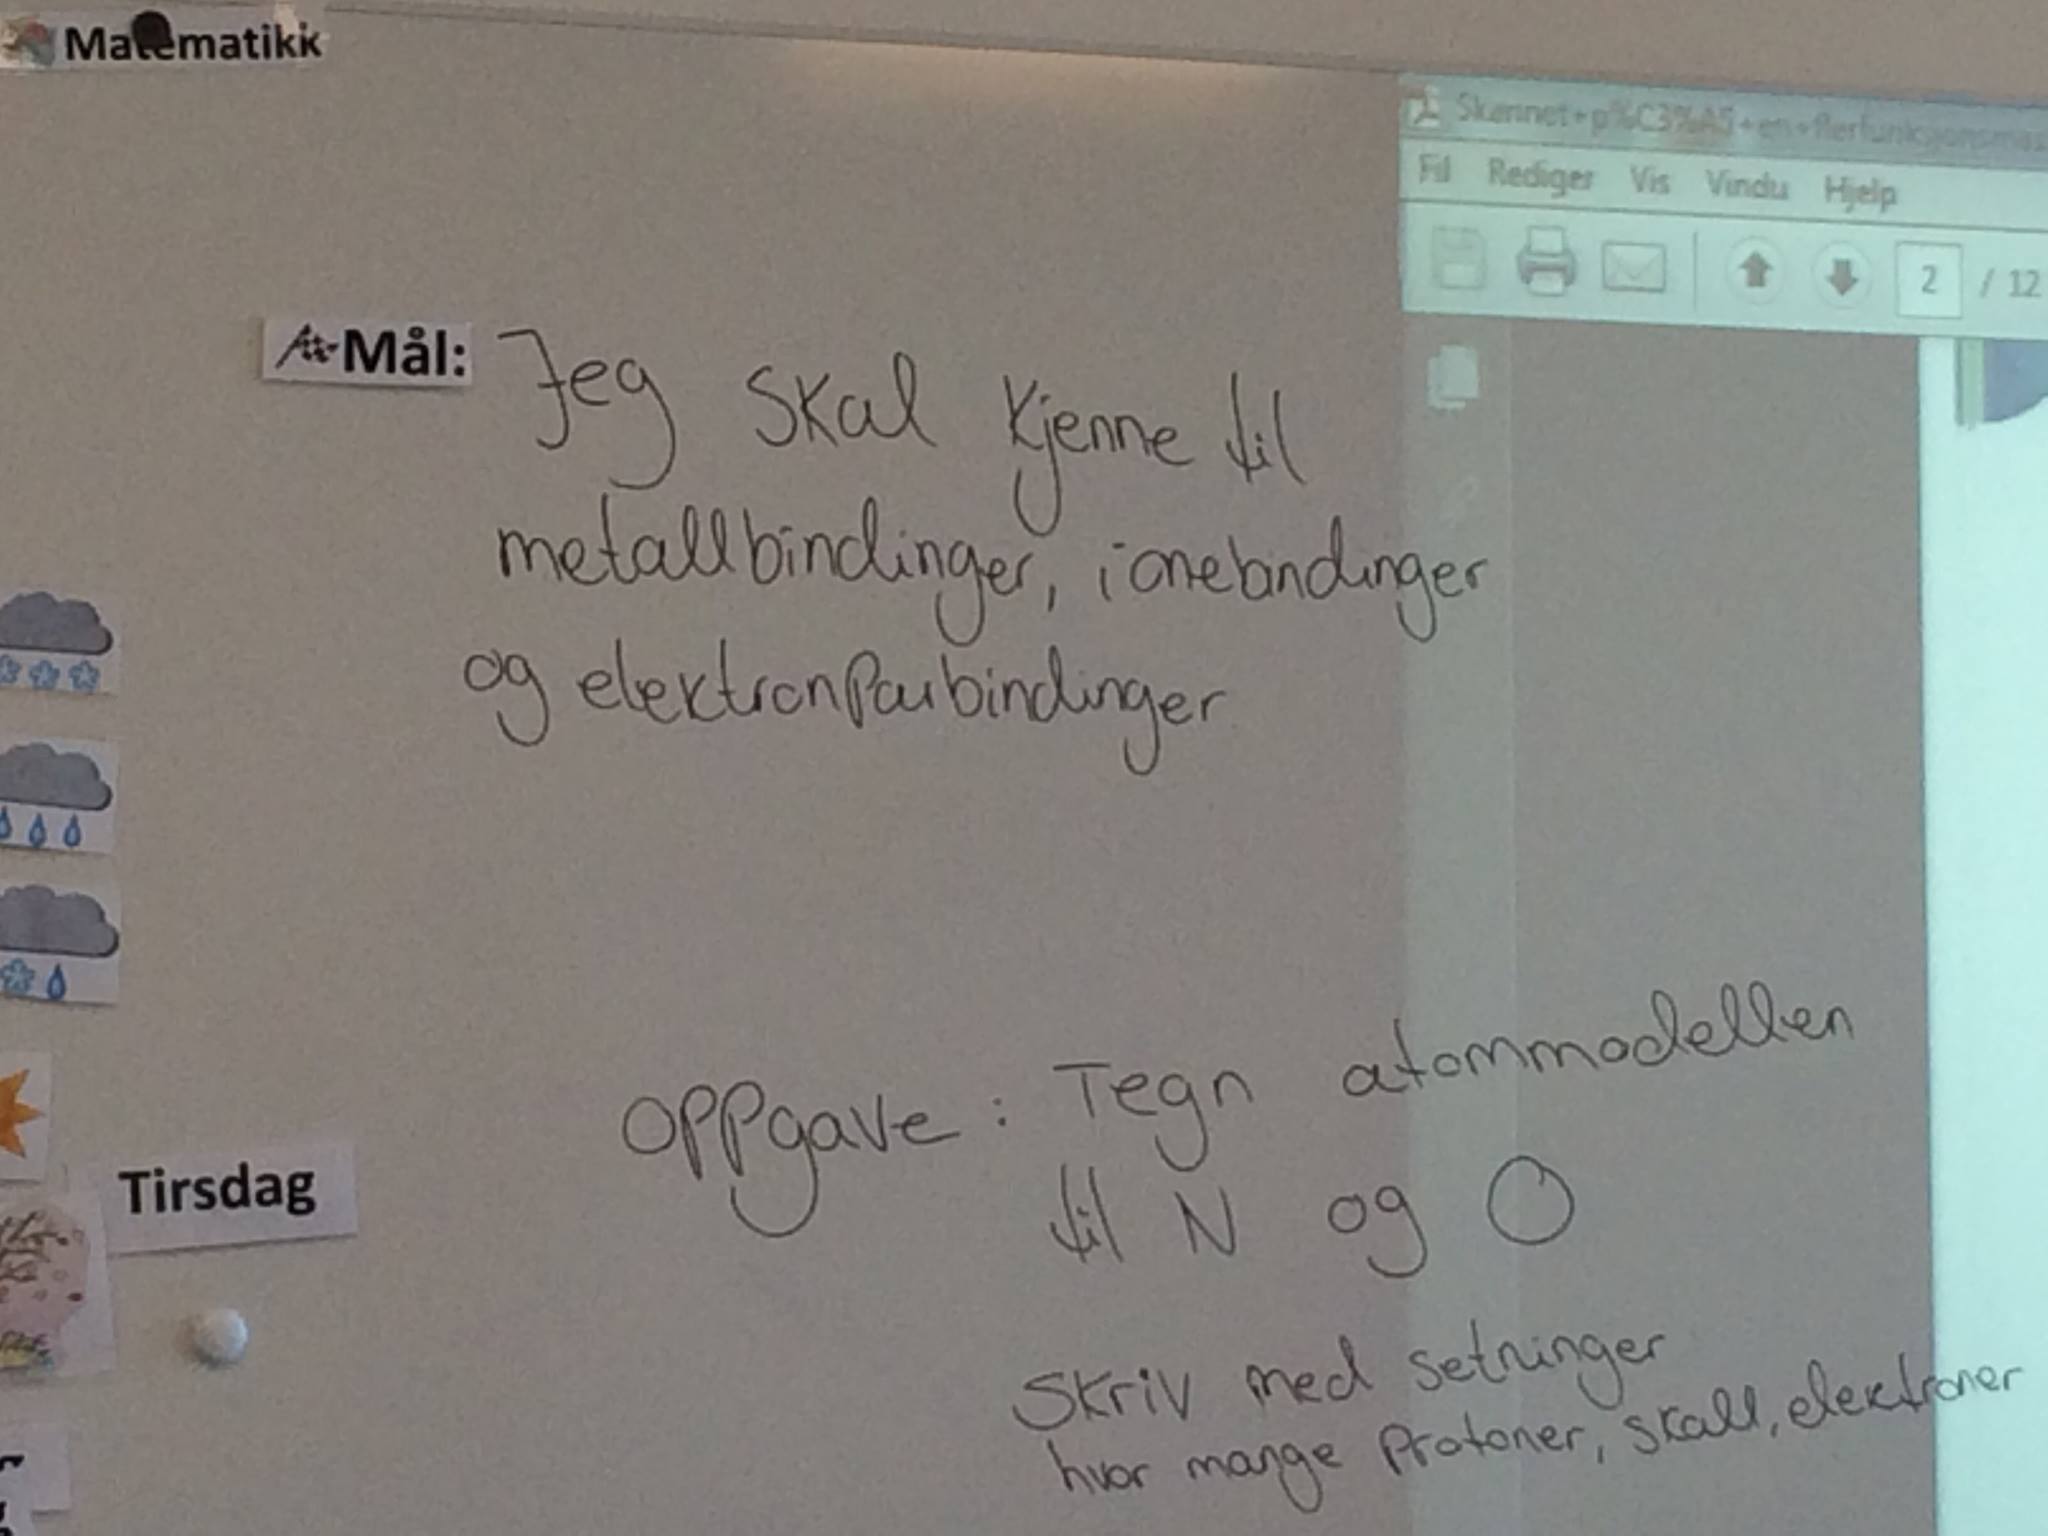 Matematikk
Skannet+p%C3%A5+en+flerfunksjonsmas
Fil Rediger Vis Vindu Hjelp
2 / 12
Mål: Jeg skal kjenne til
metallbindinger, ionebindinger
og elektronparbindinger
Oppgave: Tegn atommodellen
til N og O
Tirsdag
Skriv med setninger
hvor mange protoner, skall, elektroner